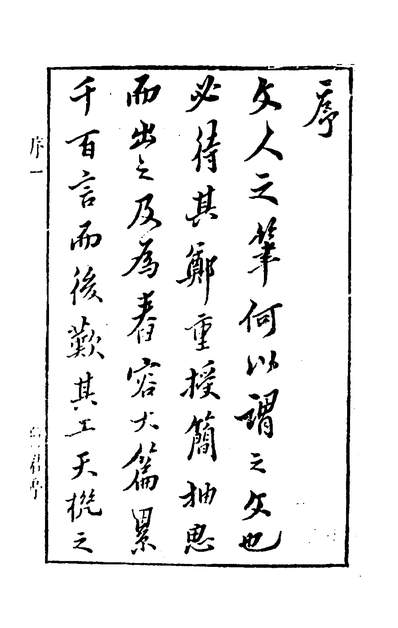 序
文人之筆何以謂之文也
必待其鄭重授簡抽思
而出之及為舂容大篇累
千百言而後歎其工天機之
序一
君亭